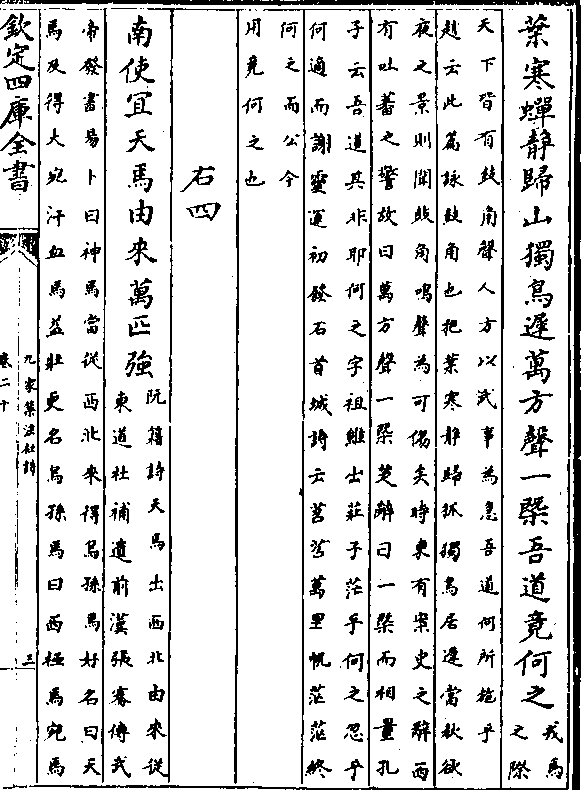 葉寒蟬靜歸山獨鳥遲萬方聲一槩吾道竟何之戎馬之際
天下皆有鼓角聲人方以武事為急吾道何所施乎
趙云此篇詠鼓角也把葉寒靜歸孤獨鳥居遲當秋欲
夜之景則聞鼓角鳴聲為可傷矣時東有案史之辭西
有吐蕃之警故曰萬方聲一槩楚辭曰一槩而相量孔
子云吾道其非耶何之字祖雖出莊子茫乎何之忽乎
何適而謝靈運初發石首城詩云苕苕萬里帆茫茫終
何之而公今
用竟何之也
右四
南使宜天馬由來萬匹強阮籍詩天馬出西北由來從
東道杜補遺前漢張騫傳武
帝發書易卜曰神馬當從西北來得烏孫馬好名曰天
馬及得大宛汗血馬益壯更名烏孫馬曰西極馬宛馬
欽定四庫全書
九家集注杜詩
卷二十
三